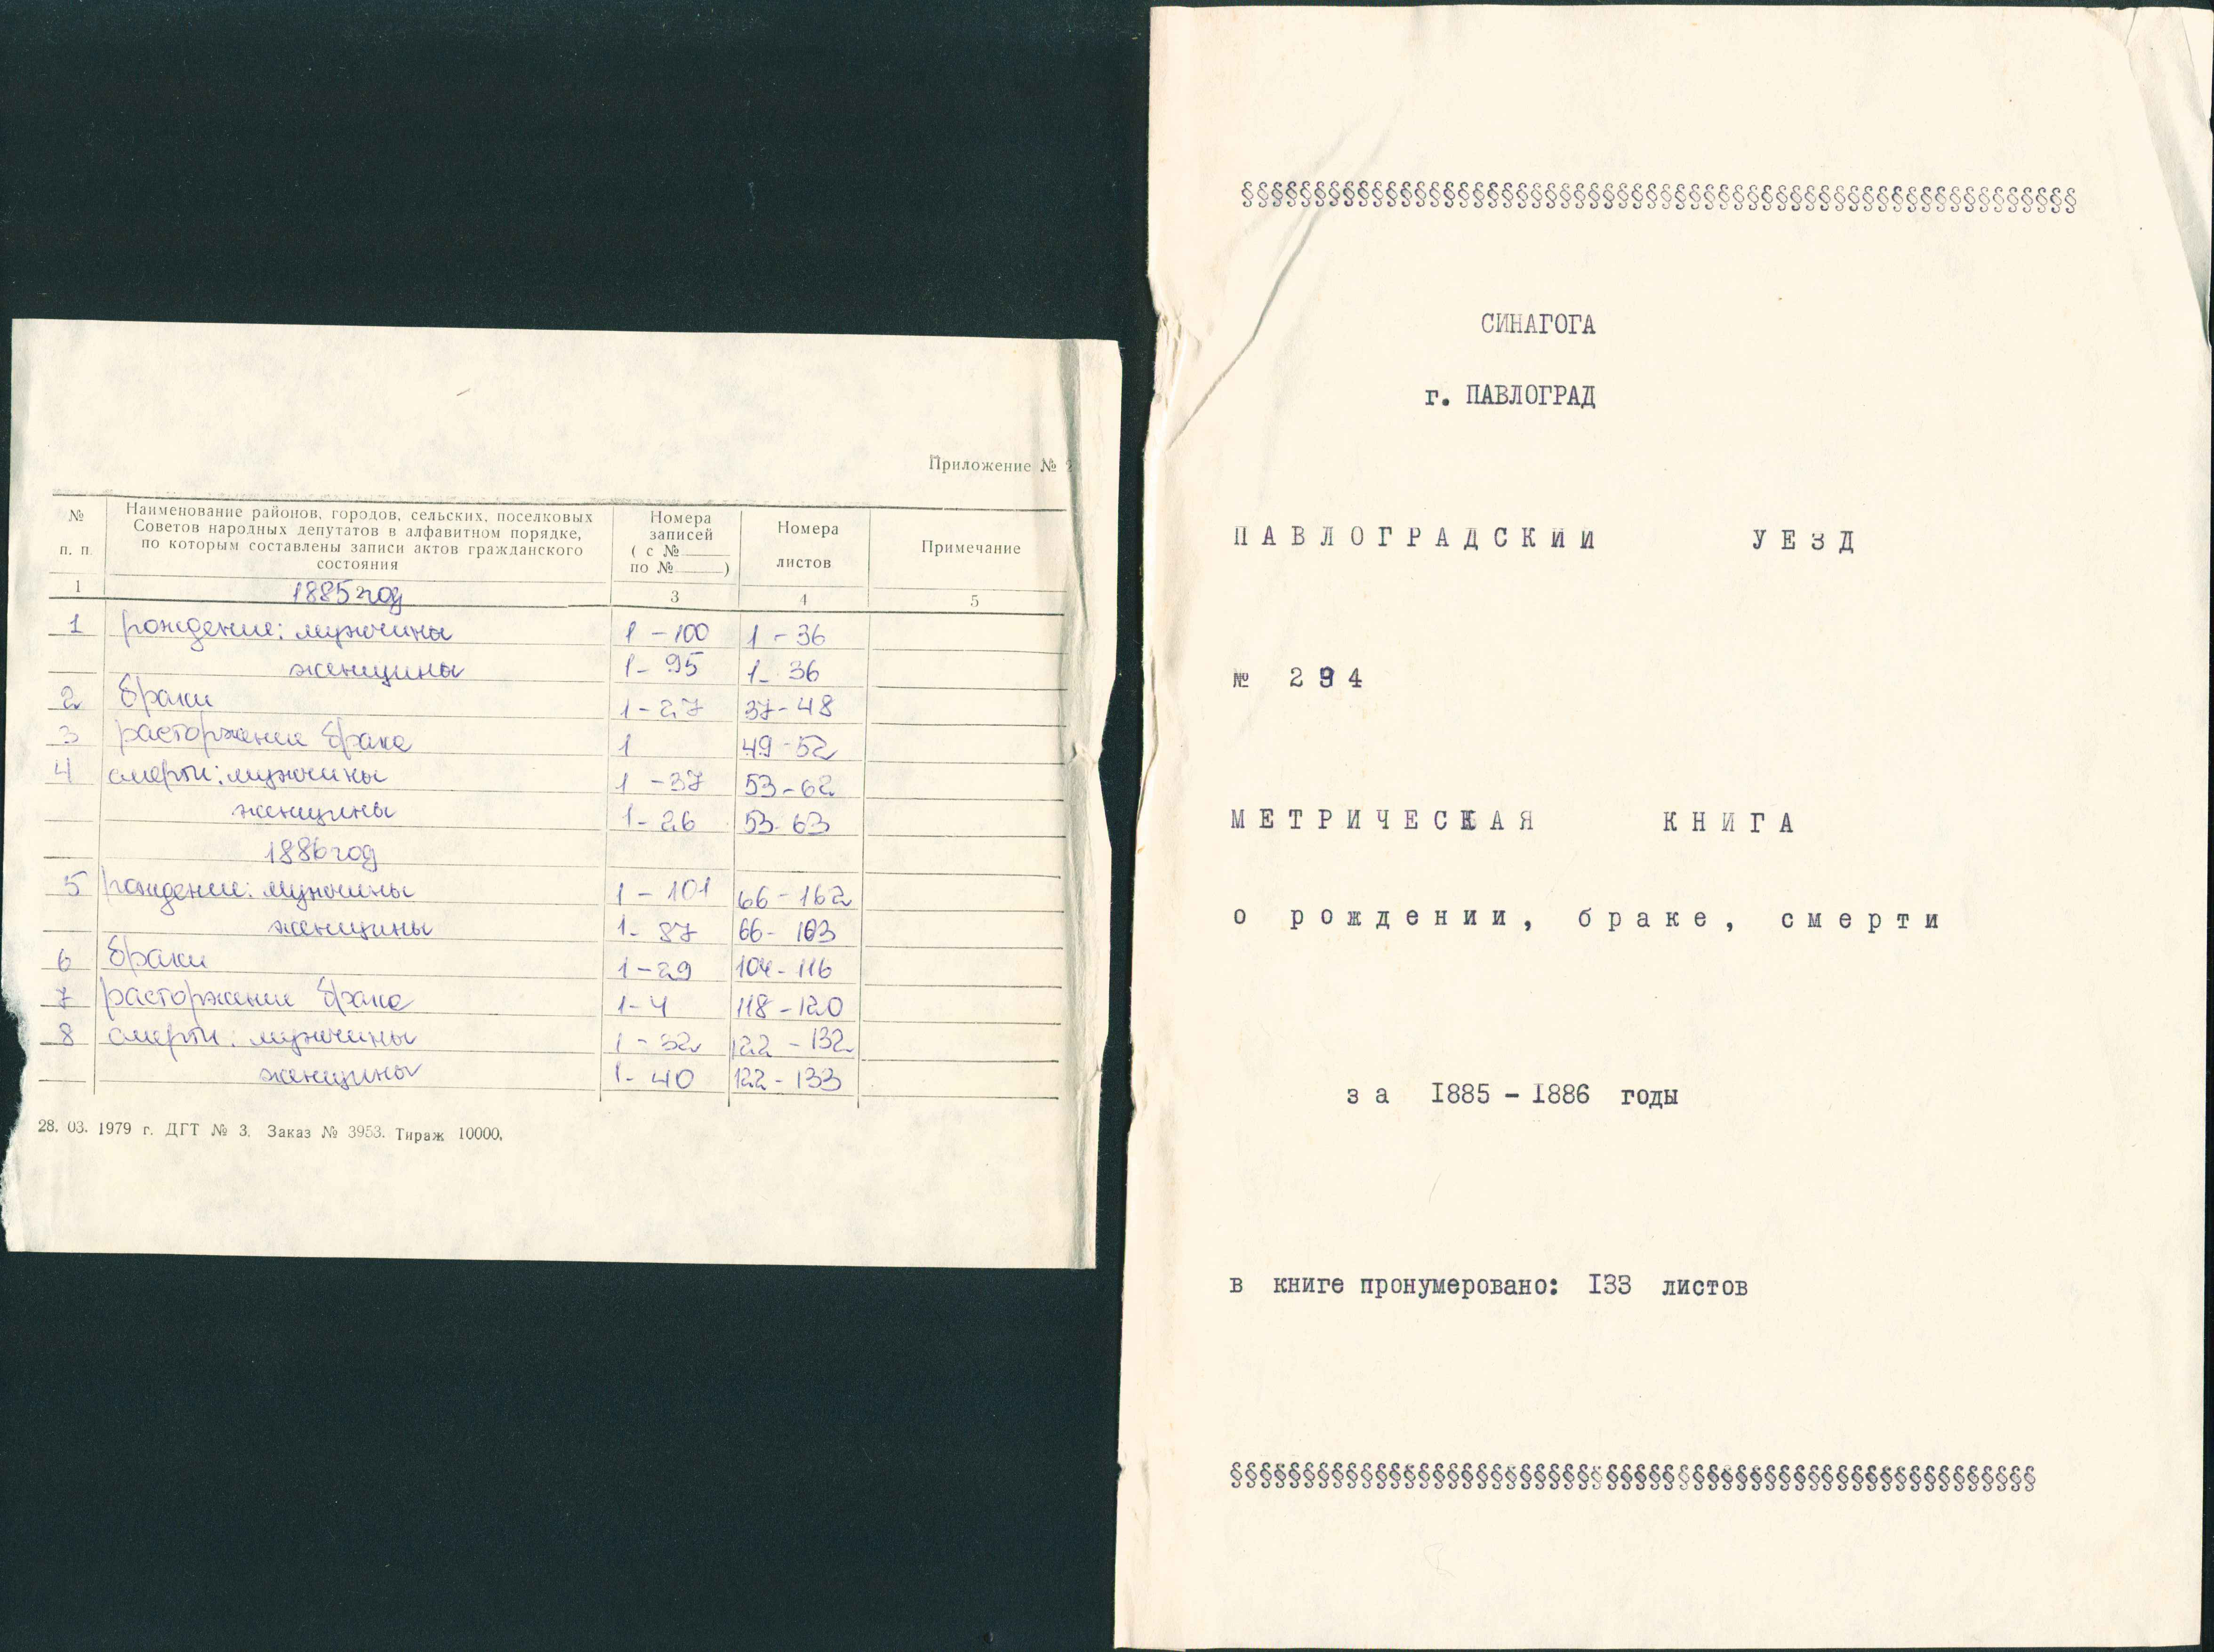 Приложение № 2
№ п. п. Наименование районов, городов, сельских, поселковых Советов народных депутатов в алфавитном порядке, по которым составлены записи актов гражданского состояния Номера записей ( с №____ по №____) Номера листов Примечание
1 1885 год 3 4 5
1 рождение: мужчины 1 - 100 1 - 36
женщины 1 - 95 1 - 36
2 браки 1 - 27 37 - 48
3 расторжение брака 1 49 - 52
4 смерти: мужчины 1 - 37 53 - 62
женщины 1 - 26 53 - 63
1886 год
5 рождение: мужчины 1 - 101 66 - 162
женщины 1 - 87 66 - 103
6 браки 1 - 29 104 - 116
7 расторжение брака 1 - 4 118 - 120
8 смерти: мужчины 1 - 32 122 - 132
женщины 1 - 40 122 - 133
28. 03. 1979 г. ДГТ № 3. Заказ № 3953. Тираж 10000.
§§§§§§§§§§§§§§§§§§§§§§§§§§§§§§§§§§§§§§§§§§§§§§§§§§§§§§§§§§
СИНАГОГА
г. ПАВЛОГРАД
ПАВЛОГРАДСКИЙ УЕЗД
№ 294
МЕТРИЧЕСКАЯ КНИГА
о рождении, браке, смерти
за I885 - I886 годы
в книге пронумеровано: I33 листов
§§§§§§§§§§§§§§§§§§§§§§§§§§§§§§§§§§§§§§§§§§§§§§§§§§§§§§§§